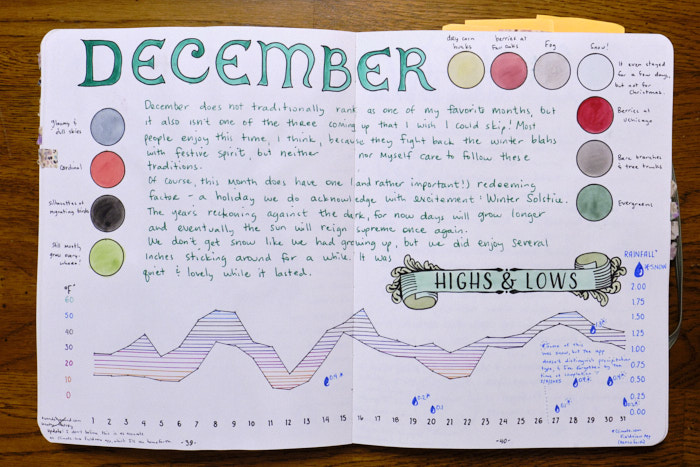 DECEMBER
dry corn
husks
berries at
Fair Oaks
Fog
Snow!
It even stayed
for a few days,
but not for
Christmas.
gloomy &
dull skies
Cardinal
Silhouettes of
migrating birds
Still mostly
green every-
where!
Berries at
Bare branches
& tree trunks
Evergreens
December does not traditionally rank as one of my favorite months, but
it also isn't one of the three coming up that I wish I could skip! Most
people enjoy this time, I think, because they fight back the winter blahs
with festive spirit, but neither nor myself care to follow these
traditions.
Of course, this month does have one (and rather important!) redeeming
factor - a holiday we do acknowledge with excitement: Winter Solstice.
The years reckoning against the dark, for now days will grow longer
and eventually the sun will reign supreme once again.
We don't get snow like we had growing up, but we did enjoy several
inches sticking around for a while. It was
quiet & lovely while it lasted.
HIGHS & LOWS
RAINFALL"
*SNOW
F°
60
50
40
30
20
10
0
2.00
1.75
1.50
1.25
1.00
0.75
0.50
0.25
0.00
0.2
0.1
1 2 3 4 5 6 7 8 9 10 11 12 13 14 15 16 17 18 19 20 21 22 23 24 25 26 27 28 29 30 31
-39-
-40-